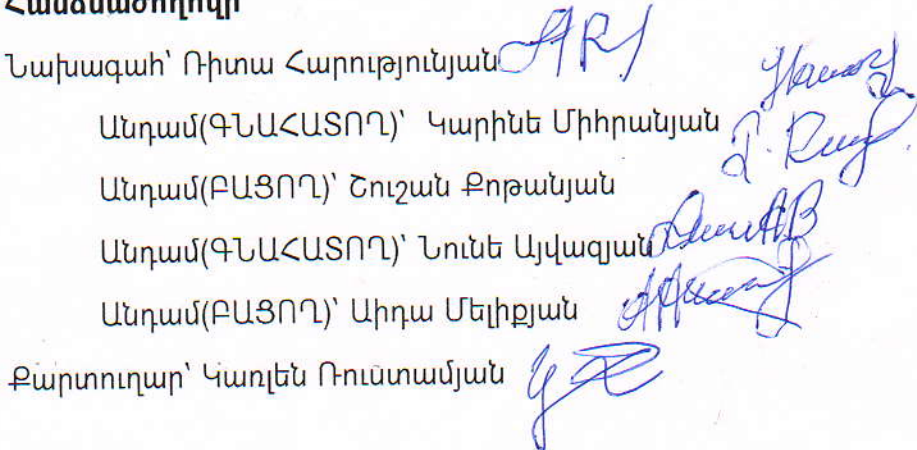 Հանձնաժողովի
Նախագահ՝ Ռիտա Հարությունյան
Անդամ(ԳՆԱՀԱՏՈՂ)՝ Կարինե Միհրանյան
Անդամ(ԲԱՑՈՂ)՝ Շուշան Քոթանյան
Անդամ(ԳՆԱՀԱՏՈՂ)՝ Նունե Այվազյան
Անդամ(ԲԱՑՈՂ)՝ Աիդա Մելիքյան
Քարտուղար՝ Կառլեն Ռուստամյան